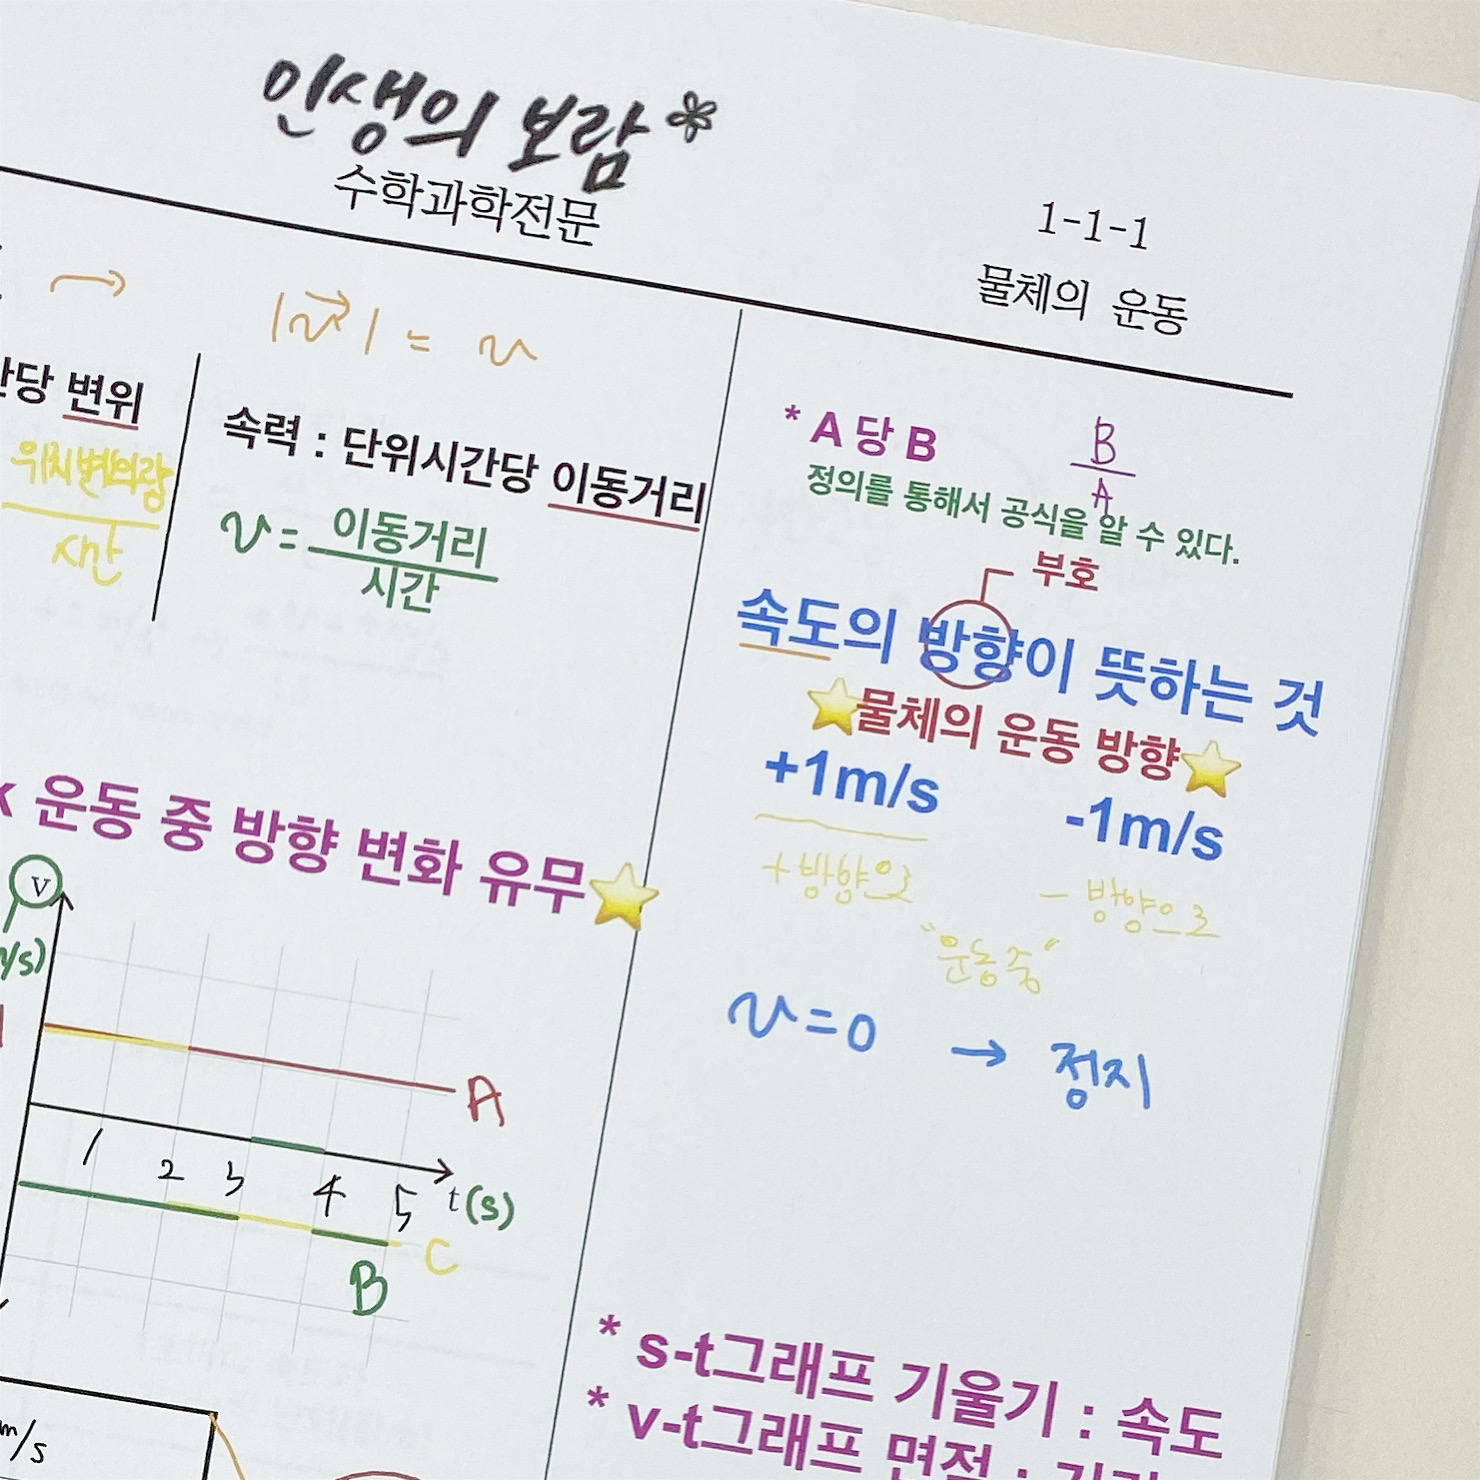 인생의 보람*
수학과학전문
1-1-1
물체의 운동
|v| = v
간당 변위
위치변화량
시간
속력 : 단위시간당 이동거리
v = 이동거리
시간
* A 당 B
B
A
정의를 통해서 공식을 알 수 있다.
부호
속도의 방향이 뜻하는 것
⭐물체의 운동 방향⭐
+1m/s
-1m/s
+방향으로
- 방향으로
"운동중"
v=0 → 정지
운동 중 방향 변화 유무⭐
v
/s)
A
1 2 3 4 5 t(s)
C
B
m/s
* s-t그래프 기울기 : 속도
* v-t그래프 면적 :